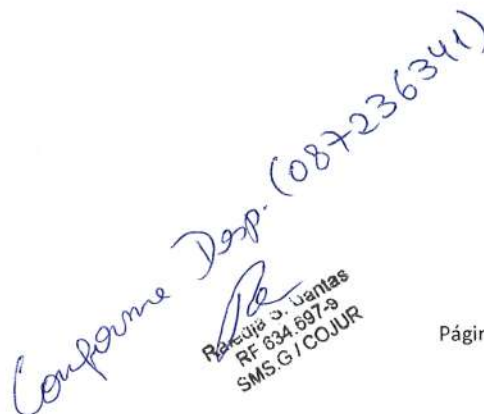 Conforme Desp. (087236341)
S. Dantas
RF 834.697-9
SMS.G / COJUR
Págin